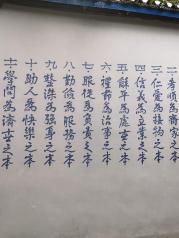 二·孝順為齊家之本
三·仁愛為接物之本
四·信義為立業之本
五·平為處世之本
六·禮節為治事之本
七·服從為負責之本
八·勤儉為服務之本
九·整潔為強身之本
十·助人為快樂之本
十一·學問為濟世之本